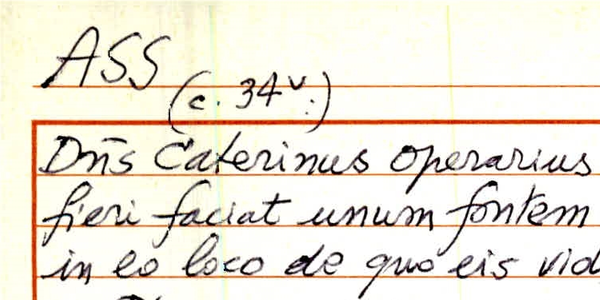 ASS
(c. 34v.)
Dn̄s Caterinus operarius
fieri faciat unum fontem
in eo loco de quo eis vid